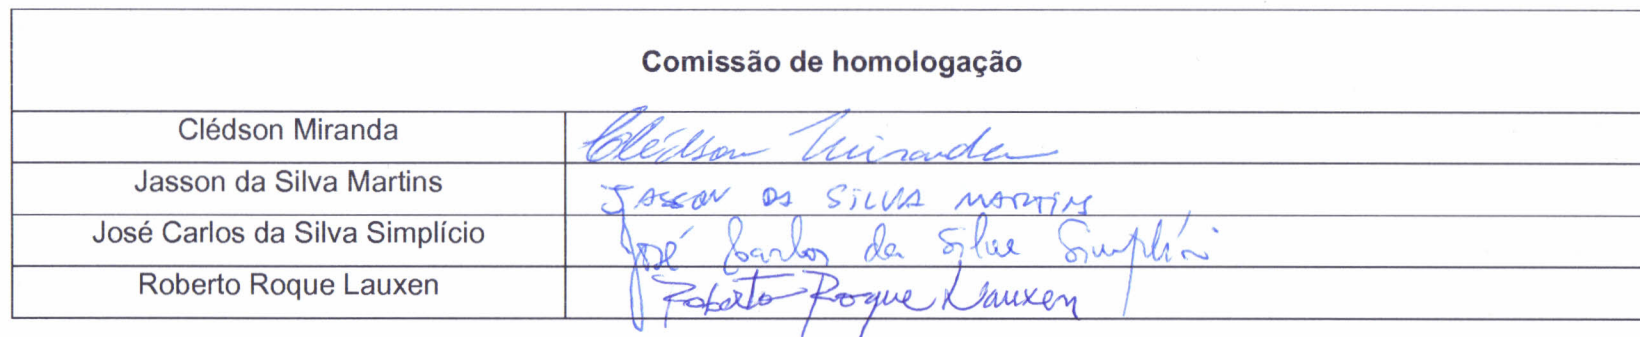 Comissão de homologação
Clédson Miranda Clédson Miranda
Jasson da Silva Martins JASSON DA SILVA MARTINS
José Carlos da Silva Simplício José Carlos da Silva Simplício
Roberto Roque Lauxen Roberto Roque Lauxen